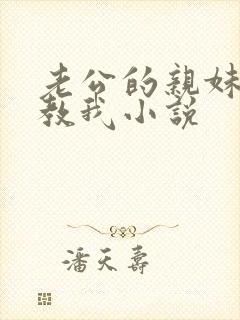 老公的親妹
教我小说
潘天壽